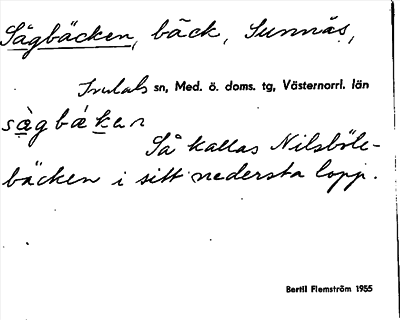 Sågbäcken, bäck, Sunnås,
Indals sn, Med. ö. doms. tg, Västernorrl. län
sågbäkan
Så kallas Nilsböle-
bäcken i sitt nedersta lopp.
Bertil Flemström 1955